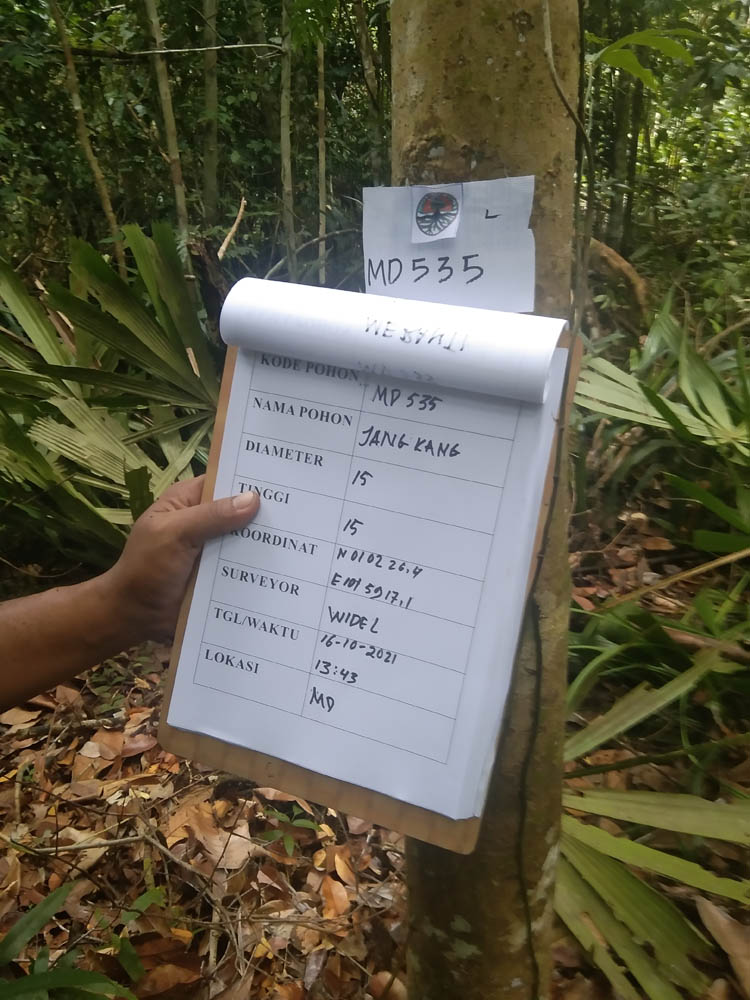 MD 535
KODE POHON MD 535
NAMA POHON JANGKANG
DIAMETER 15
TINGGI 15
KOORDINAT N 01 02 26,4
E 101 59 17,1
SURVEYOR WIDEL
TGL/WAKTU 16-10-2021
13:43
LOKASI MD